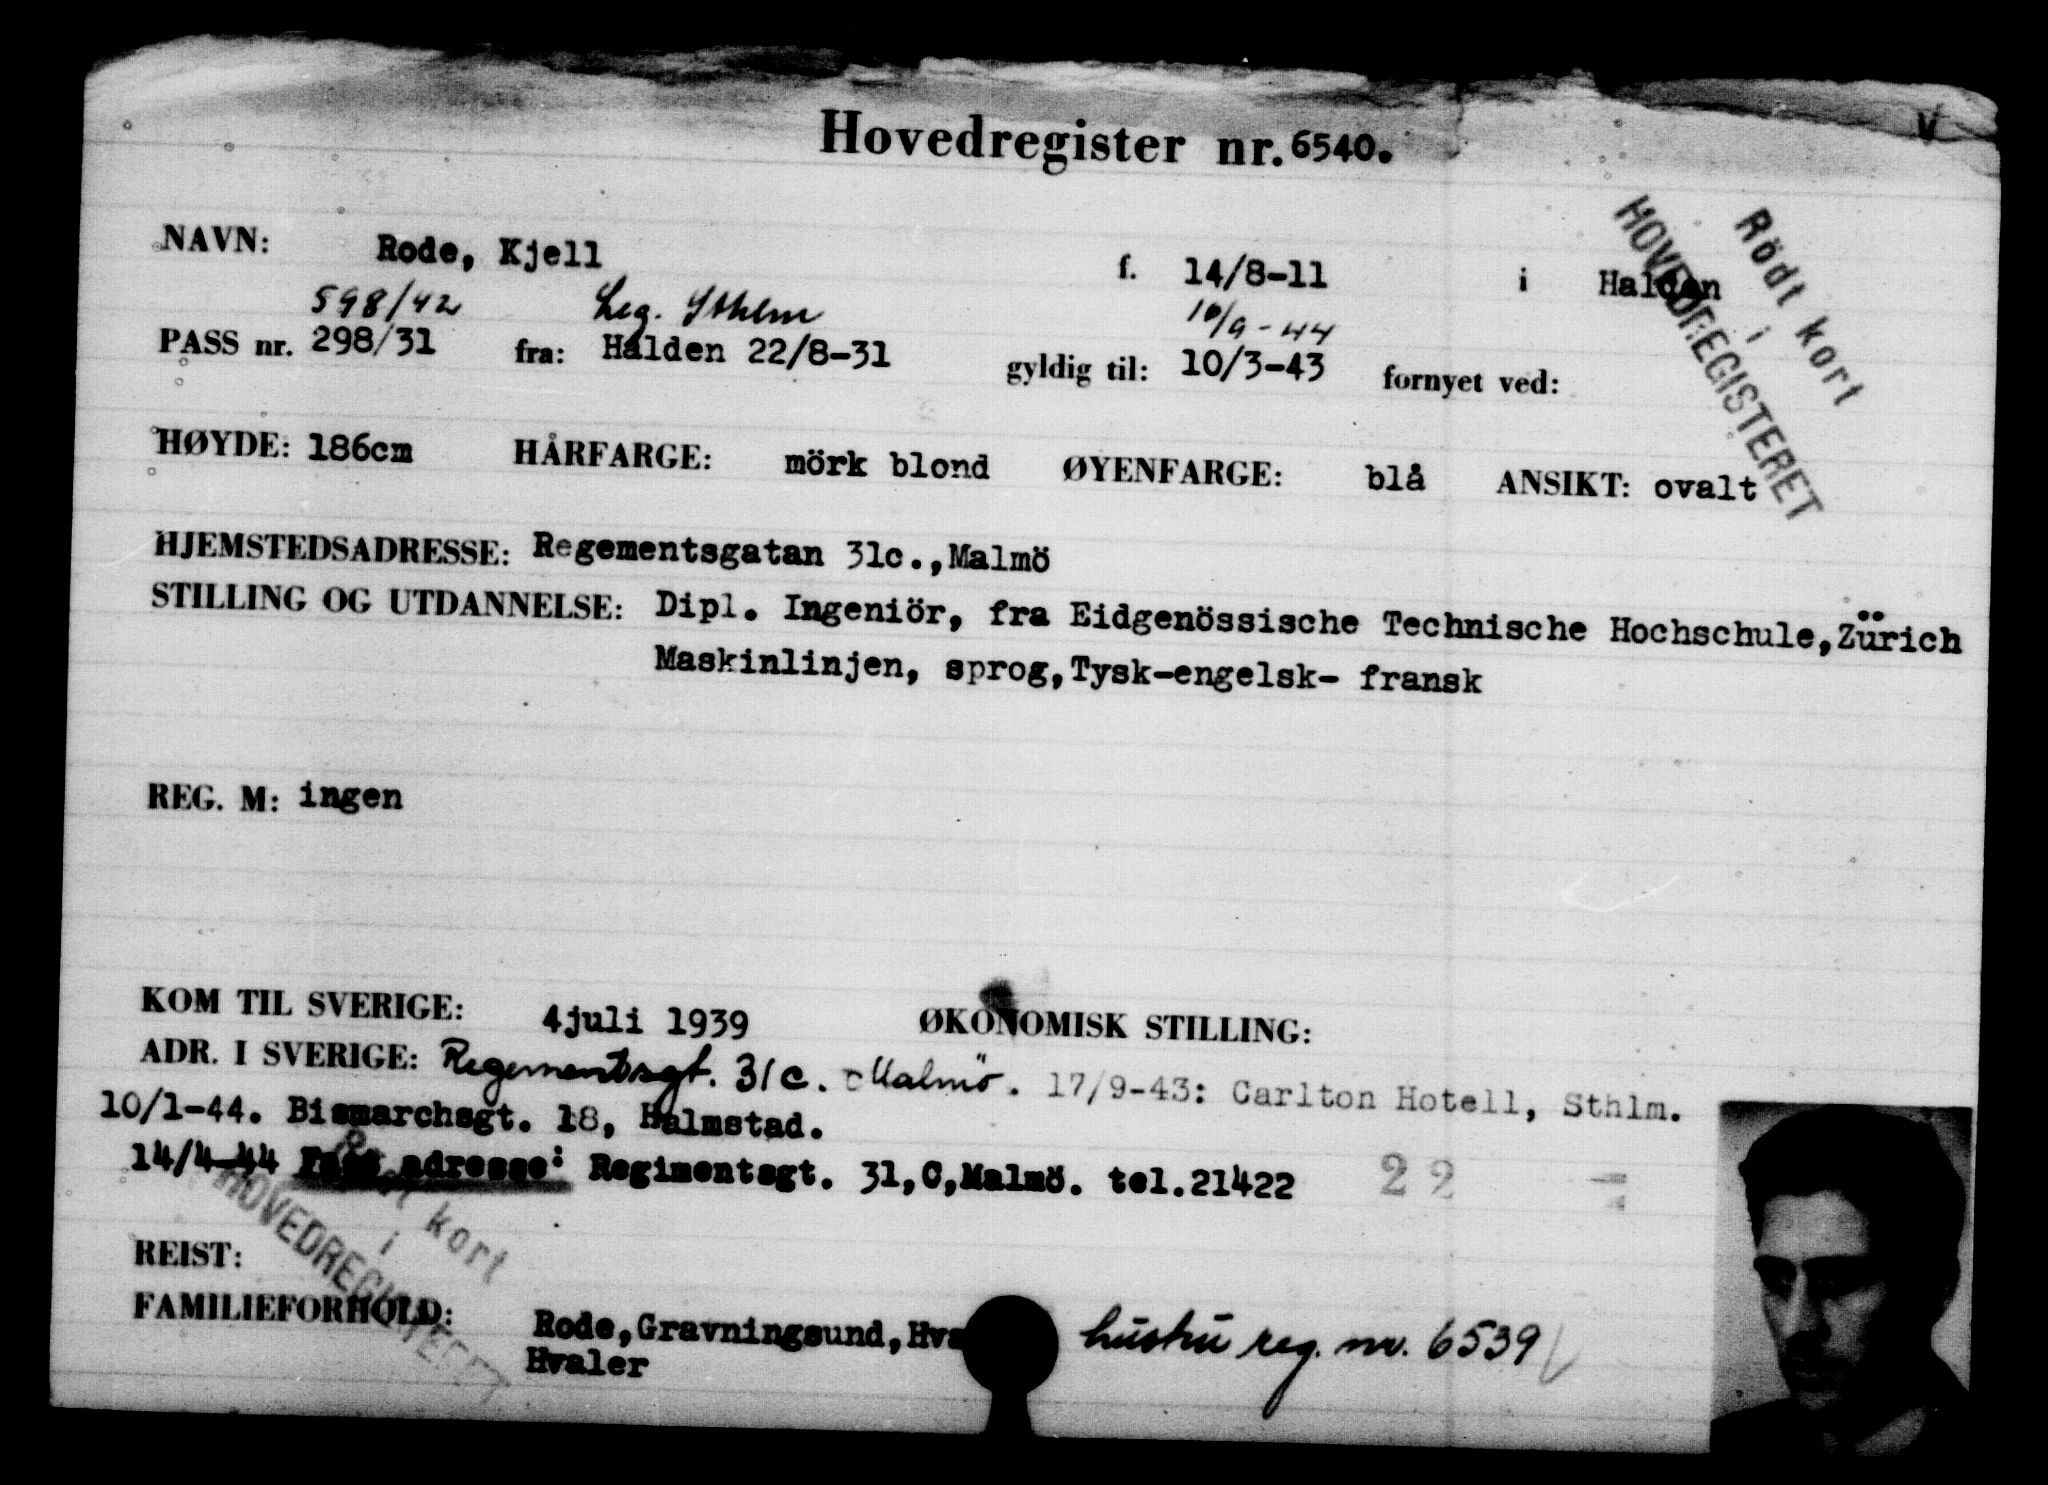 V
Hovedregister nr. 6540.
Rödt kort
i
HOVEDREGISTERET
NAVN: Rode, Kjell f. 14/8-11 i Halden
598/42 Leg. Sthlm 10/9-44
PASS nr. 298/31 fra: Halden 22/8-31 gyldig til: 10/3-43 fornyet ved:
HØYDE: 186cm HÅRFARGE: mörk blond ØYENFARGE: blå ANSIKT: ovalt
HJEMSTEDSADRESSE: Regementsgatan 31c.,Malmö
STILLING OG UTDANNELSE: Dipl. Ingeniör, fra Eidgenössische Technische Hochschule,Zürich
Maskinlinjen, sprog,Tysk-engelsk- fransk
REG. M: ingen
KOM TIL SVERIGE: 4juli 1939 ØKONOMISK STILLING:
ADR. I SVERIGE: Regementsgt. 31c. Malmö. 17/9-43: Carlton Hotell, Sthlm.
10/1-44. Bismarchsgt. 18, Halmstad.
14/4-44 Fast adresse: Regimentsgt. 31,C,Malmö. tel.21422 22
Rödt kort
i
HOVEDREGISTERET
REIST:
FAMILIEFORHOLD: Rode,Gravningsund,Hva hustru reg. nr. 6539
Hvaler